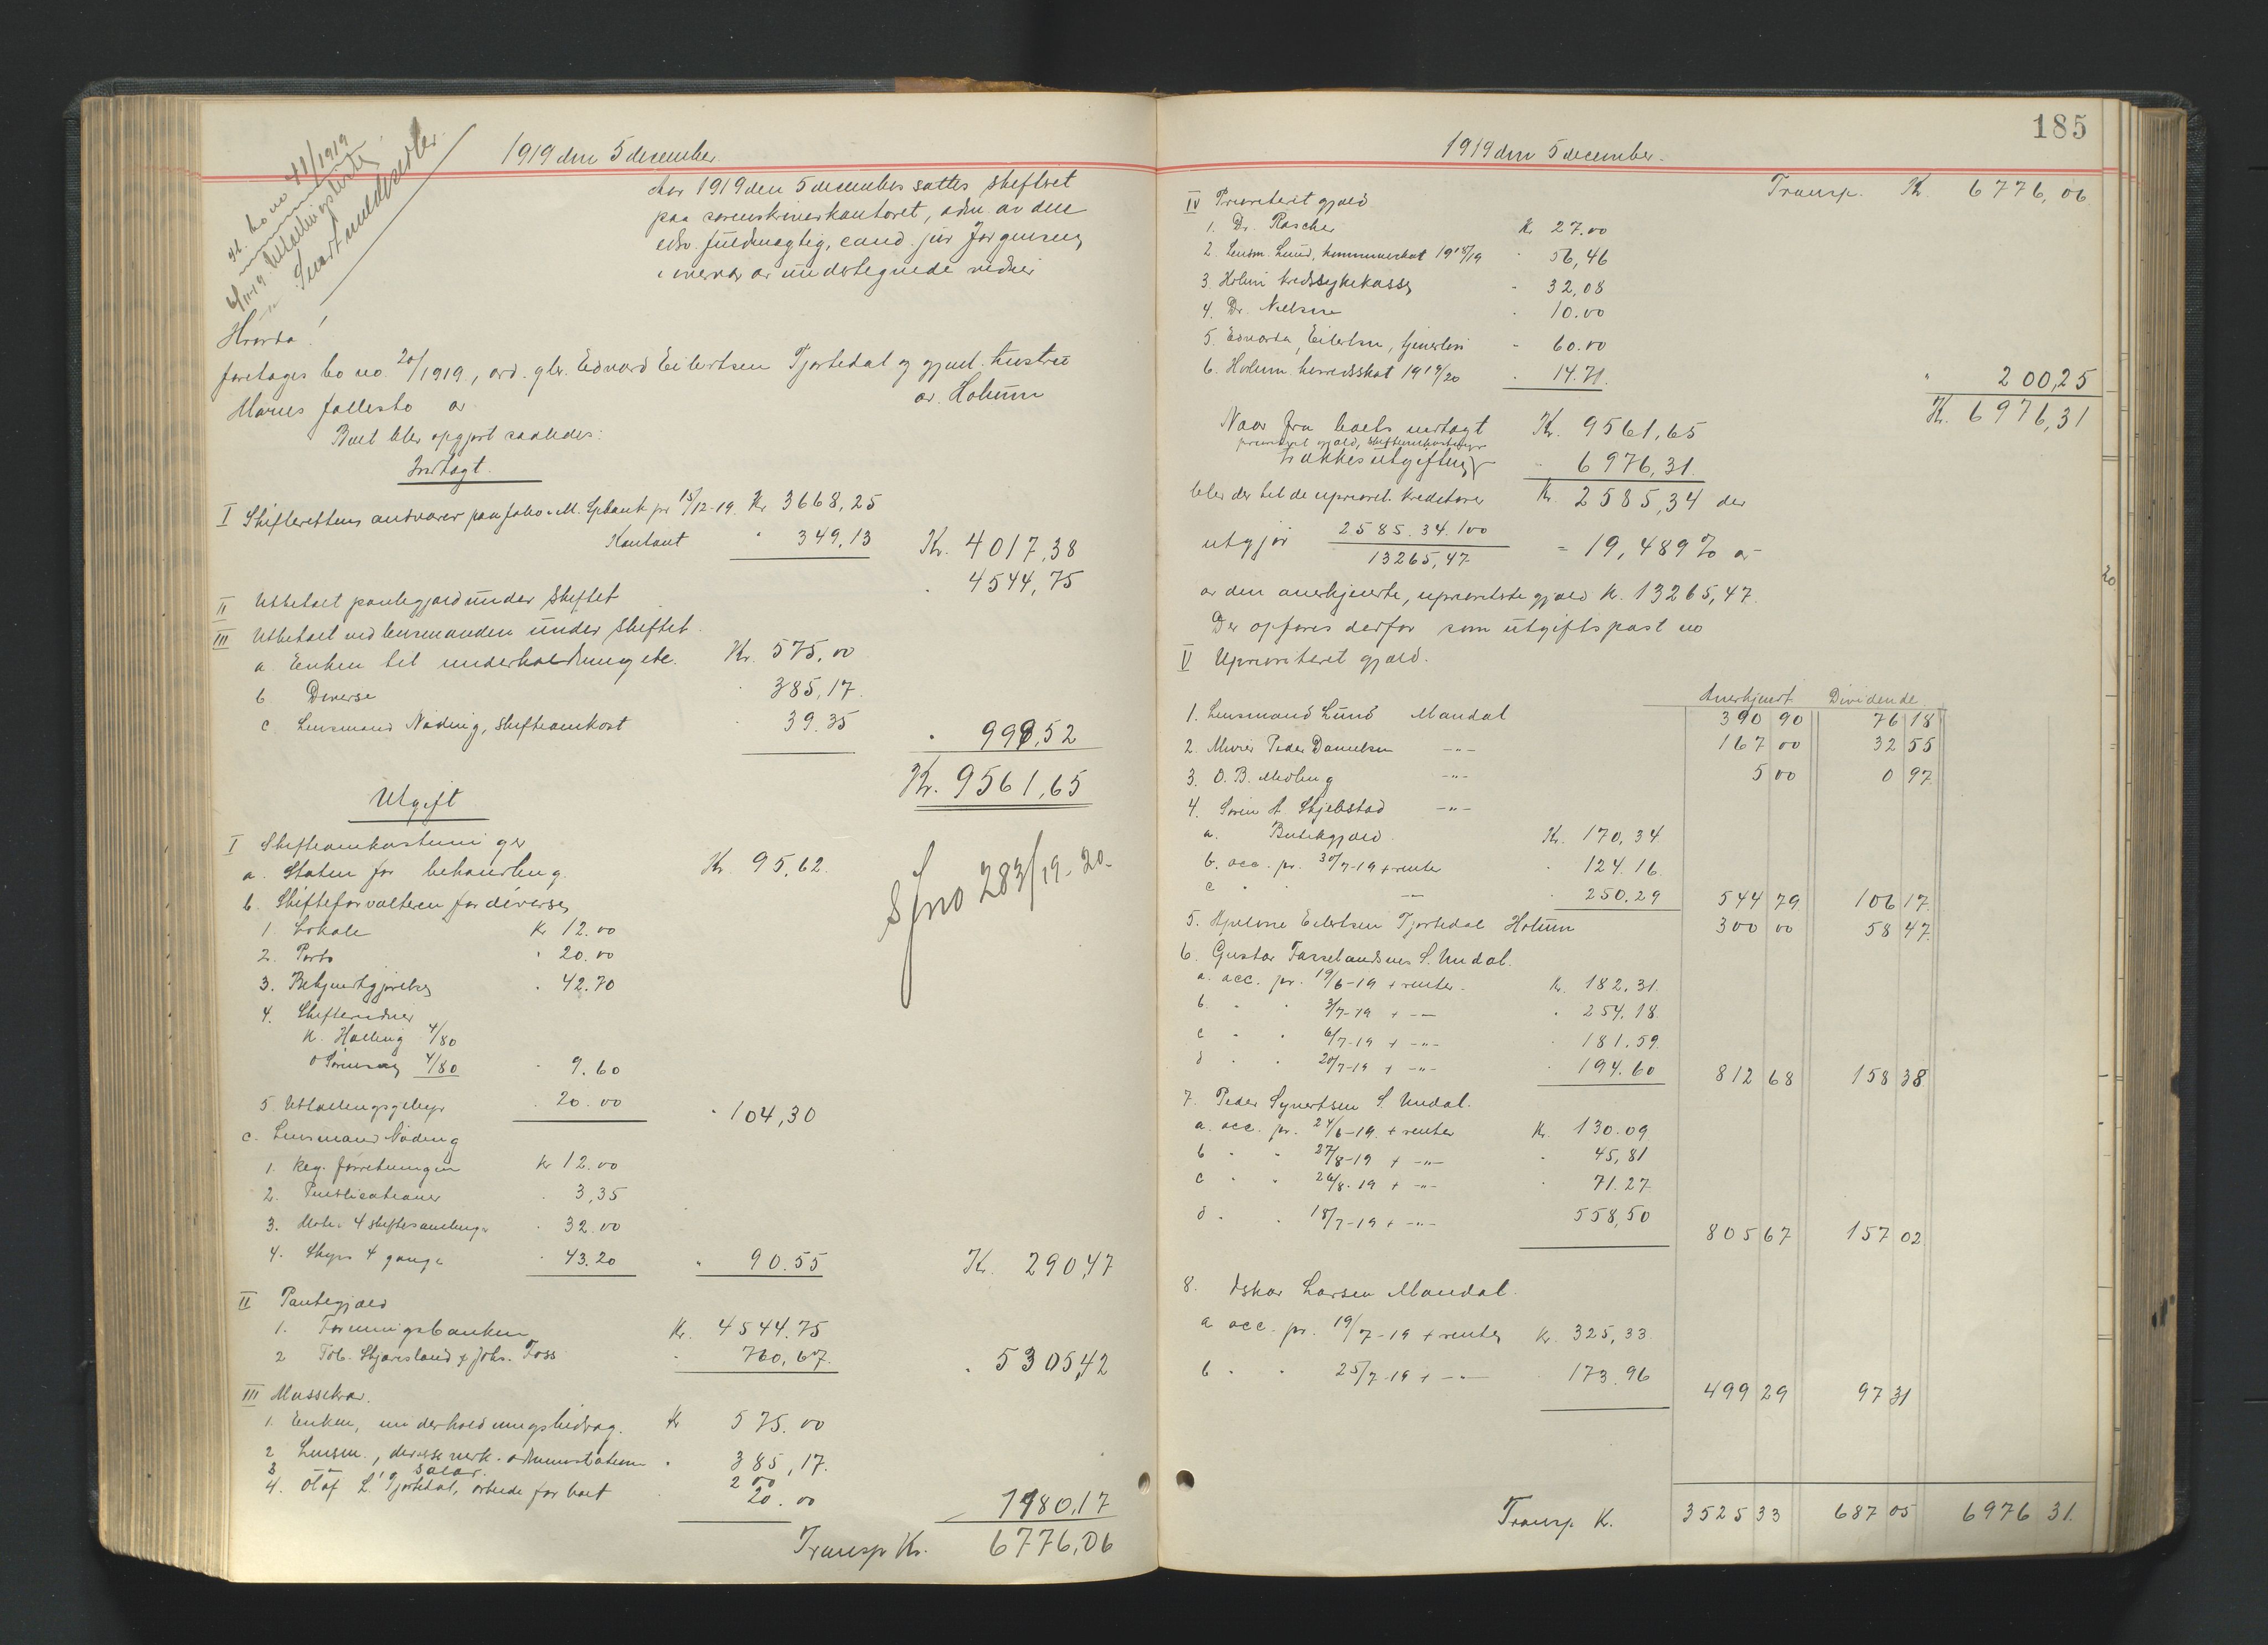 1919 den 5 december.
41/1919
Aar 1919 den 5 december sattes skifteret
paa sorenskriverkontoret, adm. av den
edsv. fuldmægtig, cand. jur Jørgensen
i nærvær av undertegnede vidner
Hvorda!
foretages bo no. 20/1919, ord. gbr. Edvard Eilertsen Tjortedal og gjenl. hustru
av Holum
Boet blev opgjort saaledes:
Indtagt.
I Skifterettens andvarer paa Joho. M. Spbank pr 15/12-19 Kr. 3668,25
Kontant " 349,13 Kr. 4017,38
II Utbetalt pantegjæld under skiftet " 4544,75
III Utbetalt ved lensmanden under skiftet.
a. Enken til underholdning etc. Kr. 575,00
b Diverse " 385,17
c. Lensmand Nøding, skifteomkost " 39.35 " 999,52
Kr. 9561,65
Utgift
I Skifteomkostninger
a. Staten for behandling. Kr 95,62.
S f no 283/19-20.
b. Skifteforvalteren for diverse
1. Lokale Kr 12.00
2. Porto " 20.00
3. Bekjendtgjørelse " 42.70
4. Skiftevidner
K. Halling 4/80
4/80 " 9.60
5 Utlodningsgebyr " 20.00 " 104,30
c. Lensmand Nøding
1. Reg. forretningen Kr 12.00
2. Publicationer " 3,35
3. Møte i 4 skiftesamlinger " 32.00
4. Skyss 4 gange " 43.20 " 90.55 Kr. 290,47
II Pantegjæld
1. Foreningsbanken Kr. 4544.75
2 Tob. Skjævesland & Johs. Foss " 760,67. " 5305,42
III Massekrav.
1. Enken, underholdningsbidrag. Kr 575.00
2 Lensm., administration " 385,17.
3 " salær. 200
4. Olaf L. Tjortedal, arbeide for boet 20.00 1180,17
Transp Kr. 6776,06
185
1919 den 5 december.
Transp. Kr. 6776,06
IV Prioritert gjæld
1. Dr. Rascher Kr 27.00
2. Lensm. Lund, kommuneskat 1918/19 " 56,46
3. Holum kredssykekasse " 32,08
4. Dr. Nielsen " 10.00
5. Edvarda Eilertsen, tjenerløn " 60.00
6. Holum herredsskat 1919/20 " 14.71. " 200,25
Kr. 6976,31
Naar fra boets indtægt Kr. 9561,65
prioritert gjæld, skifteomkostninger
trækkes utgifter " 6976,31.
blev der til de uprioret. kreditorer Kr. 2585,34 der
utgjør 2585.34.100
13265,47 = 19,489% av
av den anerkjente, upriorterte gjæld kr. 13265,47.
Der opføres derfor som utgiftspost no
V Uprioriteret gjæld.
Anerkjendt Dividende
1. Lensmand Lund Mandal 390 90 76 18
2. Murer Peder Danielsen -"- 167 00 32 55
3. O. B. -"- 5 00 0 97
4. Søren A. Skjebstad -"-
a. Butikgjæld. Kr. 170,34
b. acc. pr. 30/7-19 + renter " 124.16.
c " -"- " 250.29 544 79 106 17.
5. Eilertsen Tjortedal Holum 300 00 58 47.
6. Gustav S. Undal.
a. acc. pr. 19/6-19 + renter. Kr. 182.31.
b. " " 3/7-19 + -"- " 254.18
c " " 6/7-19 + -"- " 181.59.
d " " 20/7-19 + -"- " 194.60 812 68 158 38
7. Peder Syvertsen S. Undal.
a. acc. pr. 24/6-19. + renter Kr. 130.09
b " " 27/8-19 + -"- " 45,81
c " " 26/8.19 + -"- " 71.27
d. " " 18/7-19 + -"- 558,50 805 67 157 02
8. Oskar Larsen Mandal.
a acc. pr. 19/7-19 + renter Kr. 325,33.
b " " 25/7-19 + -"- " 173.96 499 29 97 31
Transp K. 3525 33 687 05 6976 31.